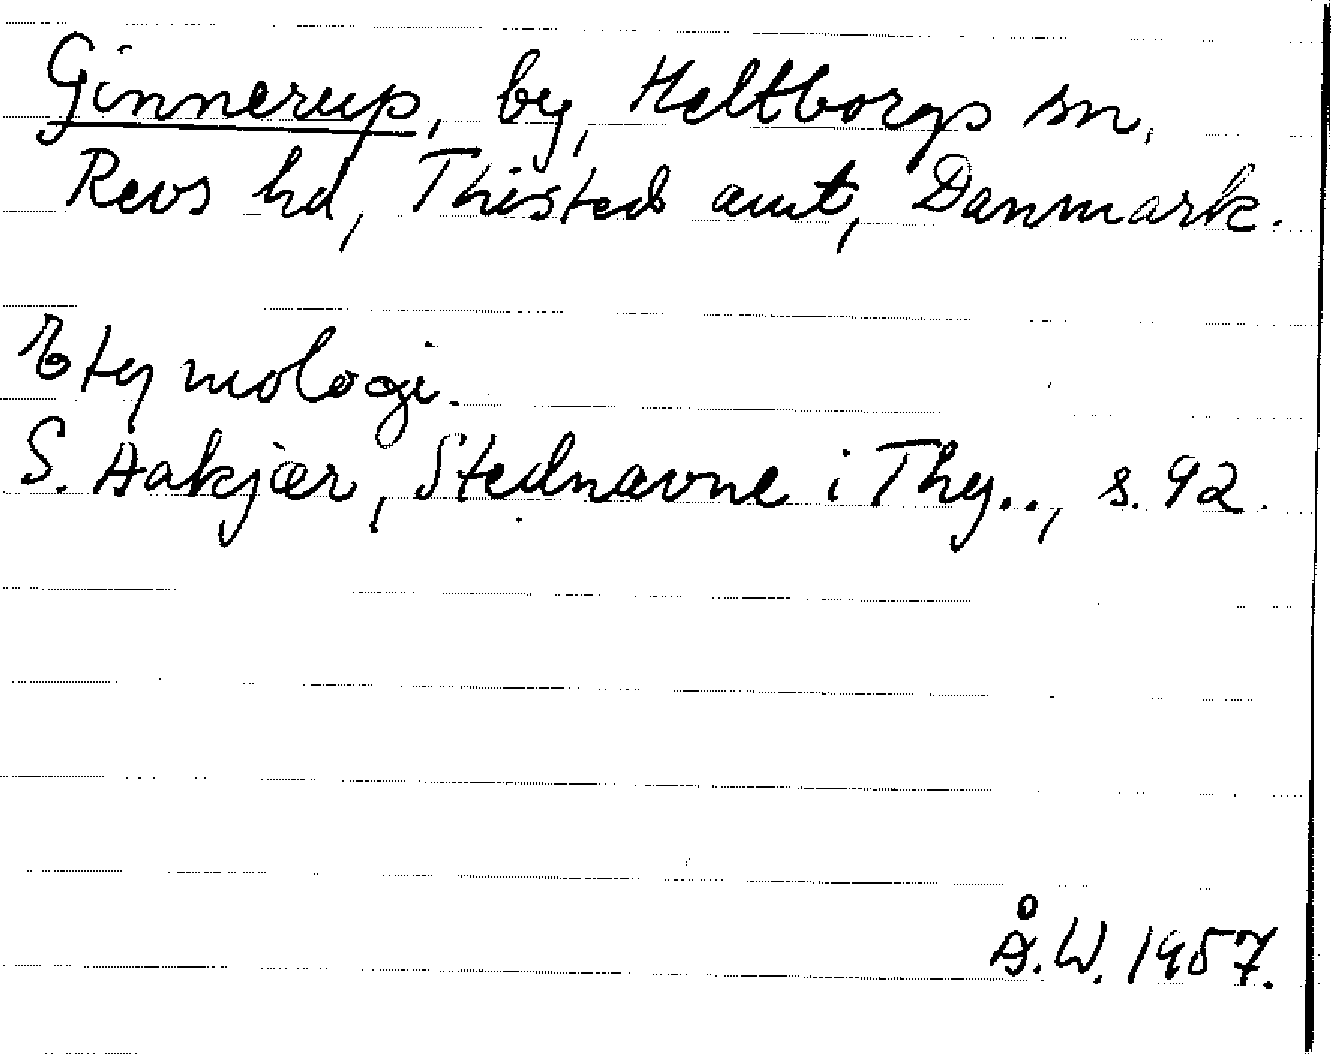 Ginnerup, by, Heltborgs sn,
Revs hd, Thisted amt, Danmark.
Etymologi.
S. Aakjær, Stednavne i Thy.., s. 92.
Å.W. 1957.